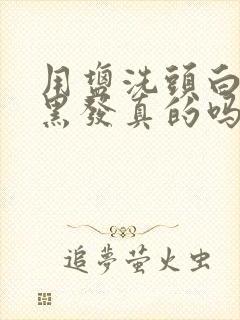 用鹽洗頭白
黑發真的嗎
追夢螢火虫